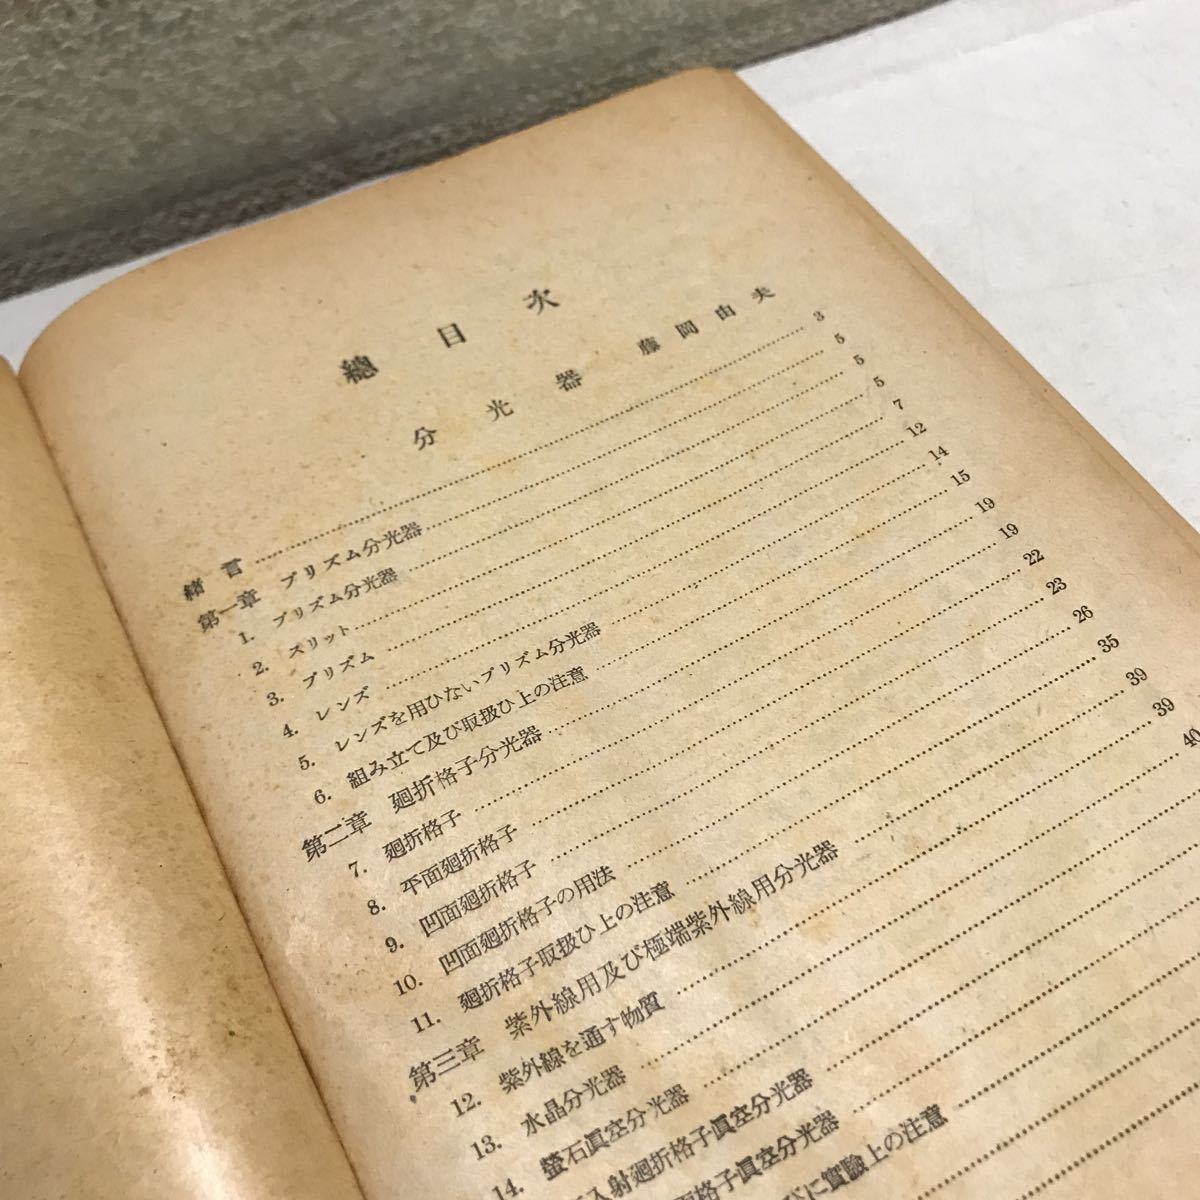 總目次
分光器 藤岡由夫
緒言 3
第一章 プリズム分光器 5
1. プリズム分光器 5
2. スリット 5
3. プリズム 7
4. レンズ 12
5. レンズを用ひないプリズム分光器 14
6. 組み立て及び取扱ひ上の注意 15
第二章 廻折格子分光器 19
7. 廻折格子 19
8. 平面廻折格子 22
9. 凹面廻折格子 23
10. 凹面廻折格子の用法 26
11. 廻折格子取扱ひ上の注意 35
第三章 紫外線用及び極端紫外線用分光器 39
12. 紫外線を通す物質 39
13. 水晶分光器 40
14. 螢石眞空分光器
入射廻折格子眞空分光器
格子眞空分光器
びに實驗上の注意